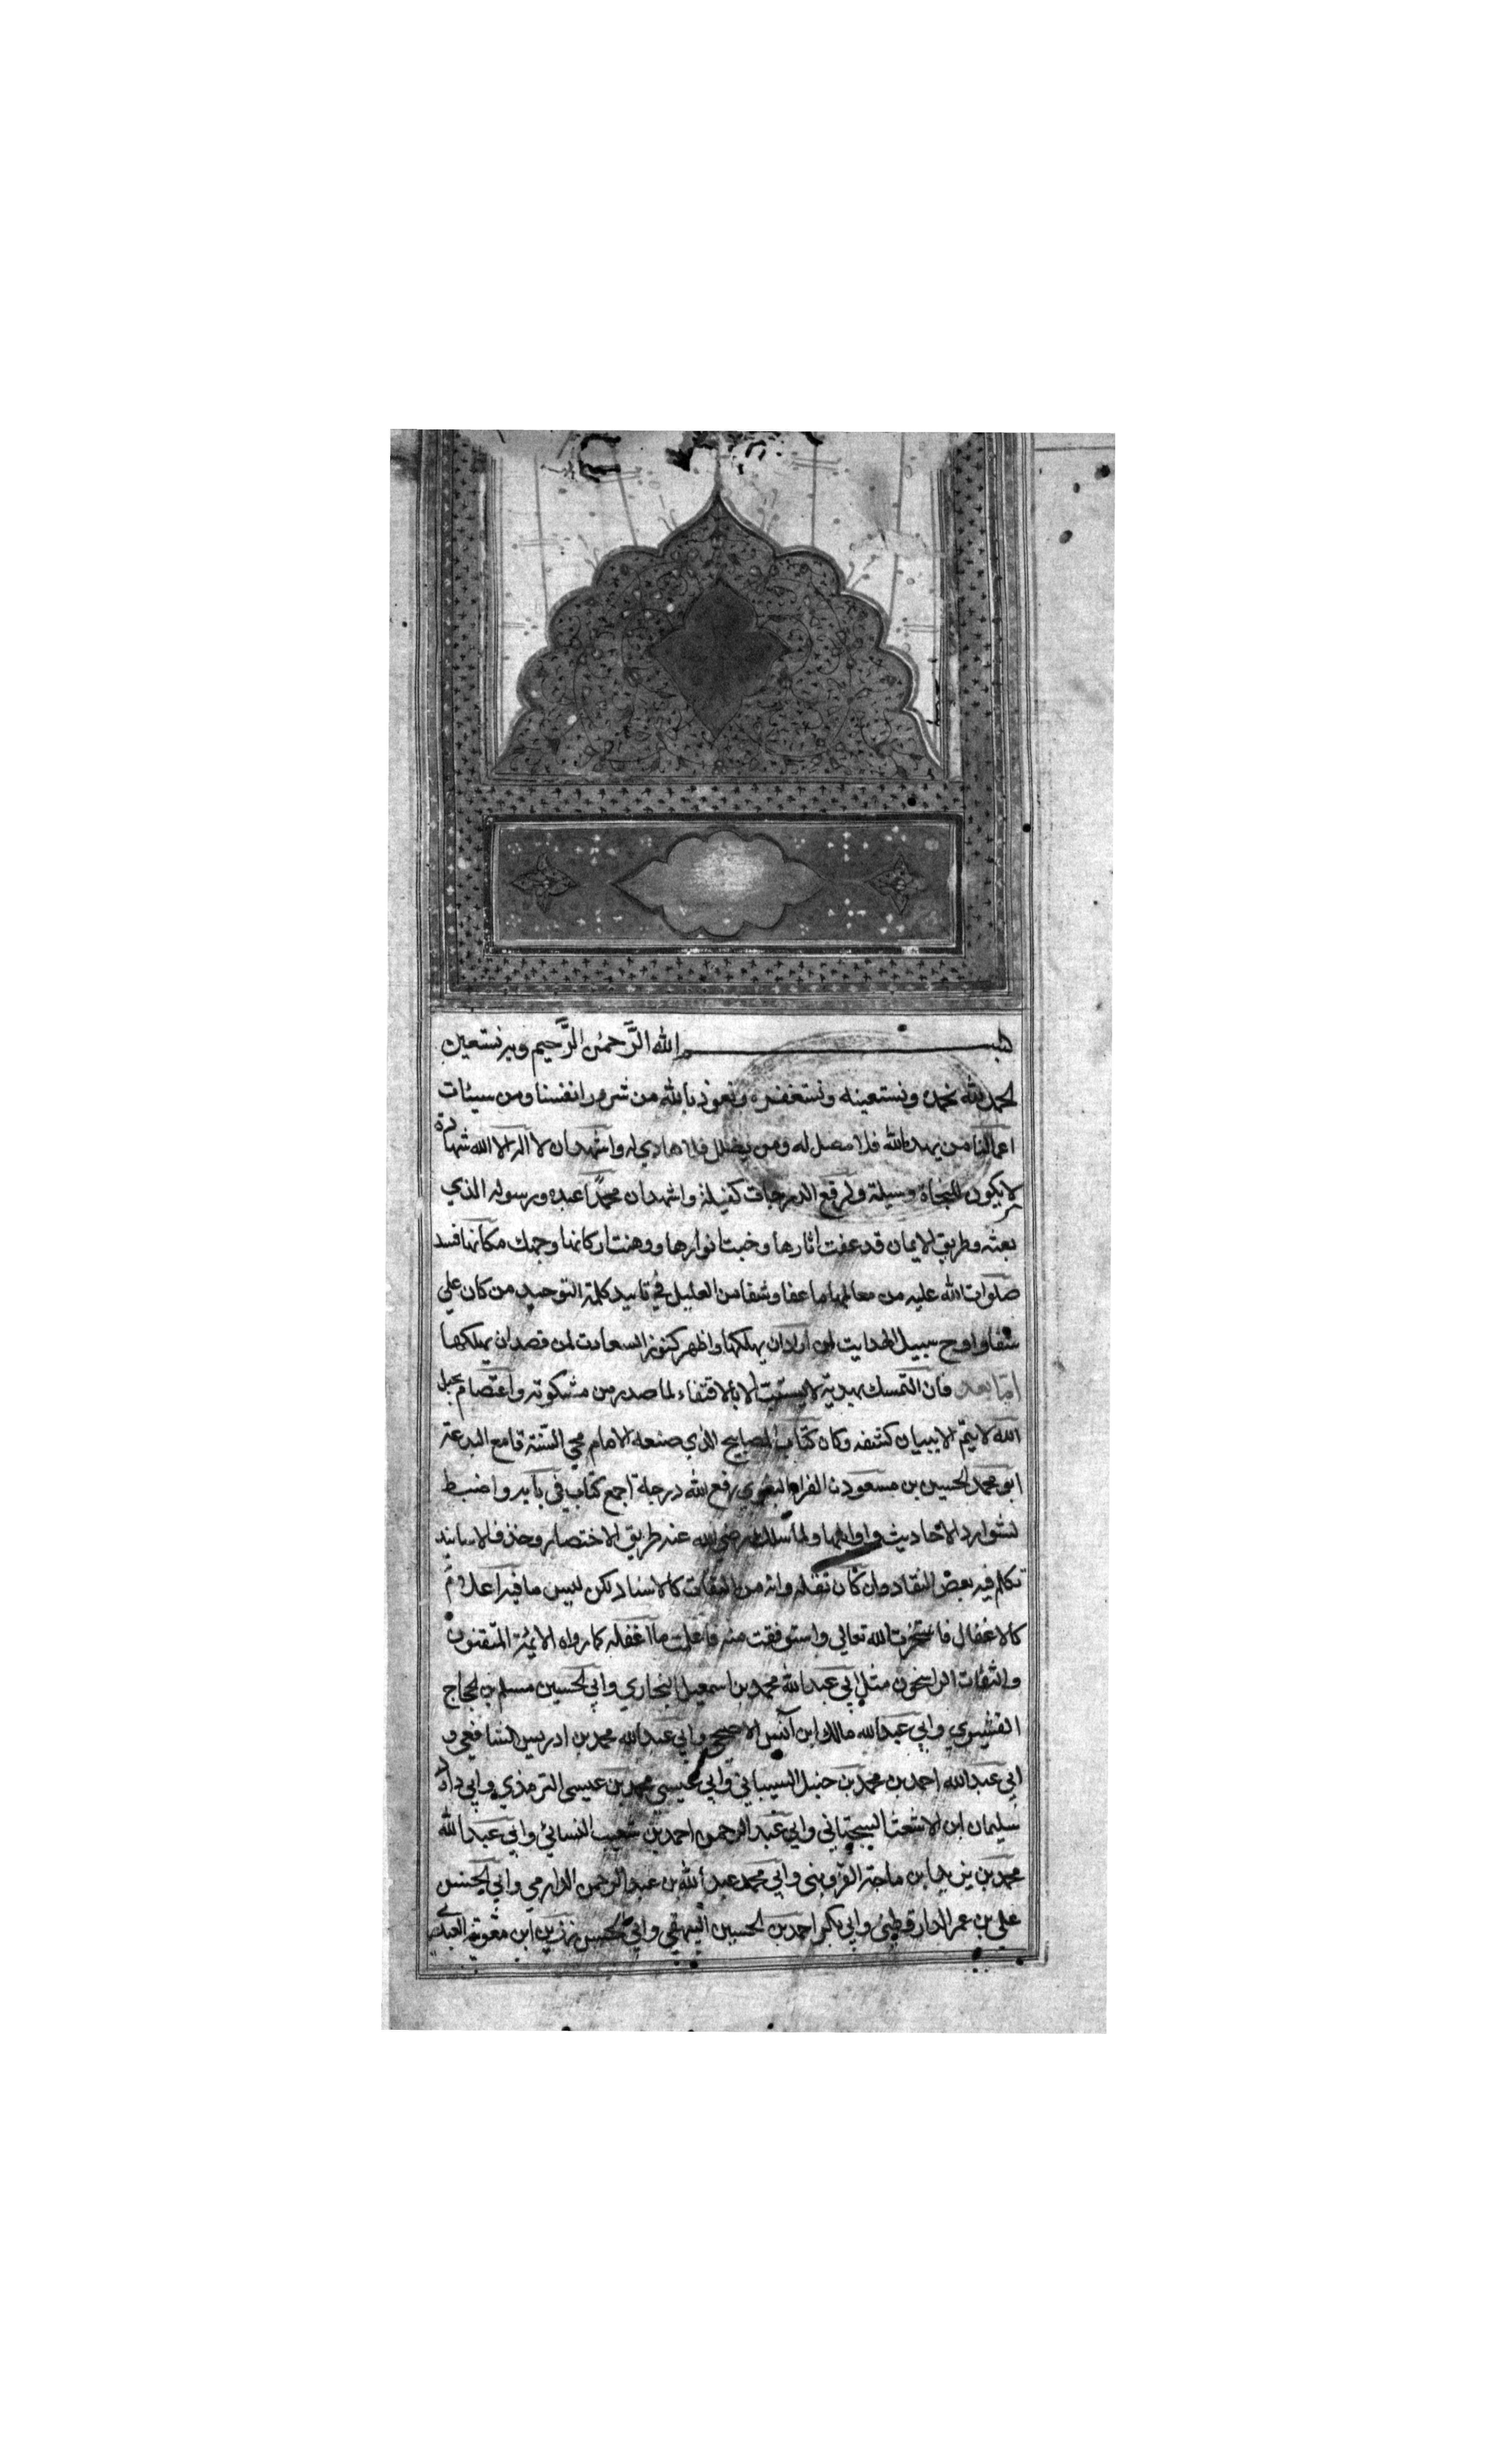 بسم الله الرحمن الرحيم وبه نستعين
الحمد لله نحمده ونستعينه ونستغفره ونعوذ بالله من شرور انفسنا ومن سيئات
اعمالنا من يهده الله فلا مضل له ومن يضلل فلا هادي له واشهد ان لا اله الا الله شهادة
لا يكون للنجاة وسيلة ولرفع الدرجات كفيلة واشهد ان محمدا عبده ورسوله الذي
بعثه وطريق الايمان قد عفت اثارها وخبت انوارها ووهنت اركانها وجهك مكانها فسد
صلوات الله عليه من معالمها ما عفا وشفا من العليل في تاييد كلمة التوحيد من كان علي
شفا واوح سبيل الهدايت لمن اراد ان يهلكها واظهر كنوز السعادت لمن قصد ان يملكها
اما بعد فان التمسك بهدية لا يستتب الا بالاقتفاء لما صدر من مشكوته واعتصام بحبل
الله لا يتم الا ببيان كشفه وكان كتاب المصابيح الذي صنعه الامام محي السنة قامع البدعة
ابو محمد الحسين بن مسعود الفراء البغوي رفع الله درجلة اجمع كتاب في بابه واضبط
لشوارد الاحاديث واوابدها ولما سلك رضي الله عنه طريق الاختصار وحذف الاسانيد
تكلم فيه بعض النقاد وان كان نقله وانه من الثقات كالاسناد لكن ليس ما فيه اعلام
كالاغفال فاستخرت الله تعالي واستوفقت منه فاعلمت ما اغفله كما رواه الائمة المتقنون
والثقات الراسخون مثل ابي عبد الله محمد بن اسمعيل البخاري وابي الحسين مسلم بن الحجاج
القشيري وابي عبد الله مالك ابن انس الاصبحي وابي عبد الله محمد بن ادريس الشافعي و
ابي عبد الله احمد بن محمد بن حنبل السيباني وابي عيسي محمد بن عيسى الترمذي وابي داود
سليمان ابن الاشعت السجستاني وابي عبد الرحمن احمد بن شعيب النسائي وابي عبد الله
محمد بن يزيد ابن ماجة القزويني وابي محمد عبد الله بن عبد الرحمن الدارمي وابي الحسن
علي بن عمر الدارقطني وابي بكر احمد بن الحسين البيهقي وابي الحسن رزين ابن معوية العبدي